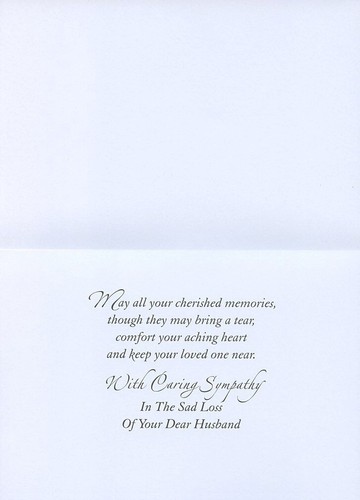 May all your cherished memories,
though they may bring a tear,
comfort your aching heart
and keep your loved one near.
With Caring Sympathy
In The Sad Loss
Of Your Dear Husband